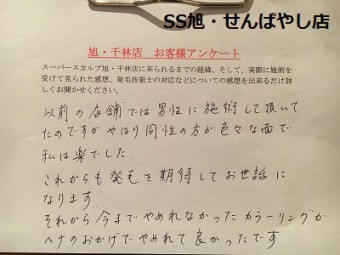 SS旭・せんばやし店
旭・千林店 お客様アンケート
スーパースカルプ旭・千林店に来られるまでの経緯、そして、実際に施術を
受けて見られた感想、発毛技能士の対応などについての感想を出来るだけ詳
しくお聞かせください。
以前の店舗では男性に施術して頂いて
たのですがやはり同性の方が色々な面で
私は楽でした。
これからも発毛を期待してお世話に
なります。
それから今までやめれなかったカラーリングが
ヘナのおかげでやめれて良かったです。